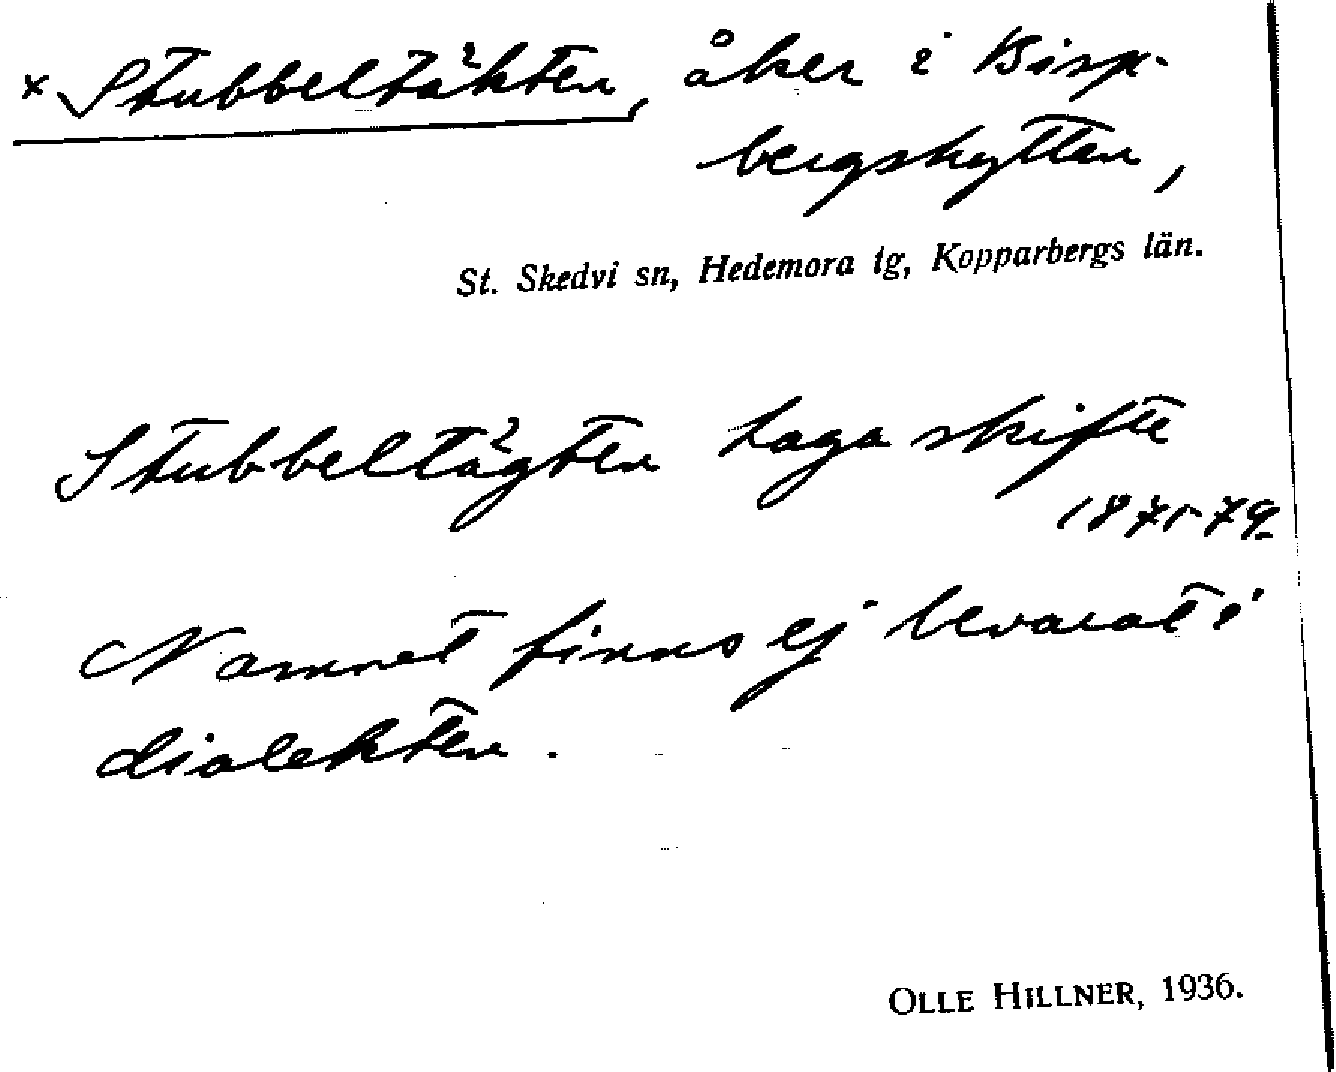 × Stubbeltäkten, åker i Bisp-
bergshyttan,
St. Skedvi sn, Hedemora tg, Kopparbergs län.
Stubbeltägten Laga skifte
1875-79
Namnet finns ej bevarat i
dialekten.
OLLE HILLNER, 1936.